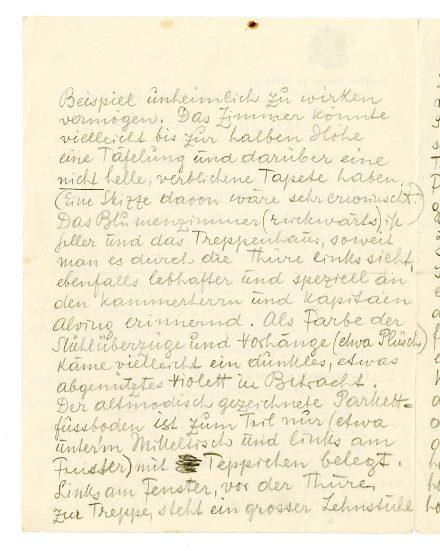 Beispiel unheimlich zu wirken
vermögen. Das Zimmer könnte
vielleicht bis zur halben Höhe
eine Täfelung und darüber eine
nicht helle, verblichene Tapete haben.
(Eine Skizze davon wäre sehr erwünscht.)
Das Blumenzimmer (rückwärts) ist
heller und das Treppenhaus, soweit
man es durch die Thüre links sieht,
ebenfalls lebhafter und speziell an
den Kammerherrn und Kapitaen
Alving erinnernd. Als Farbe der
Stühlüberzüge und Vorhänge (etwa Plüsch)
käme vielleicht ein dunkles, etwas
abgenütztes Violett in Betracht.
Der altmodisch gezeichnete Parkett-
fussboden ist zum Teil nur (etwa
unter'm Mitteltisch und links am
Fenster) mit Teppichen belegt.
Links am Fenster, vor der Thüre
zur Treppe, steht ein grosser Lehnstuhl